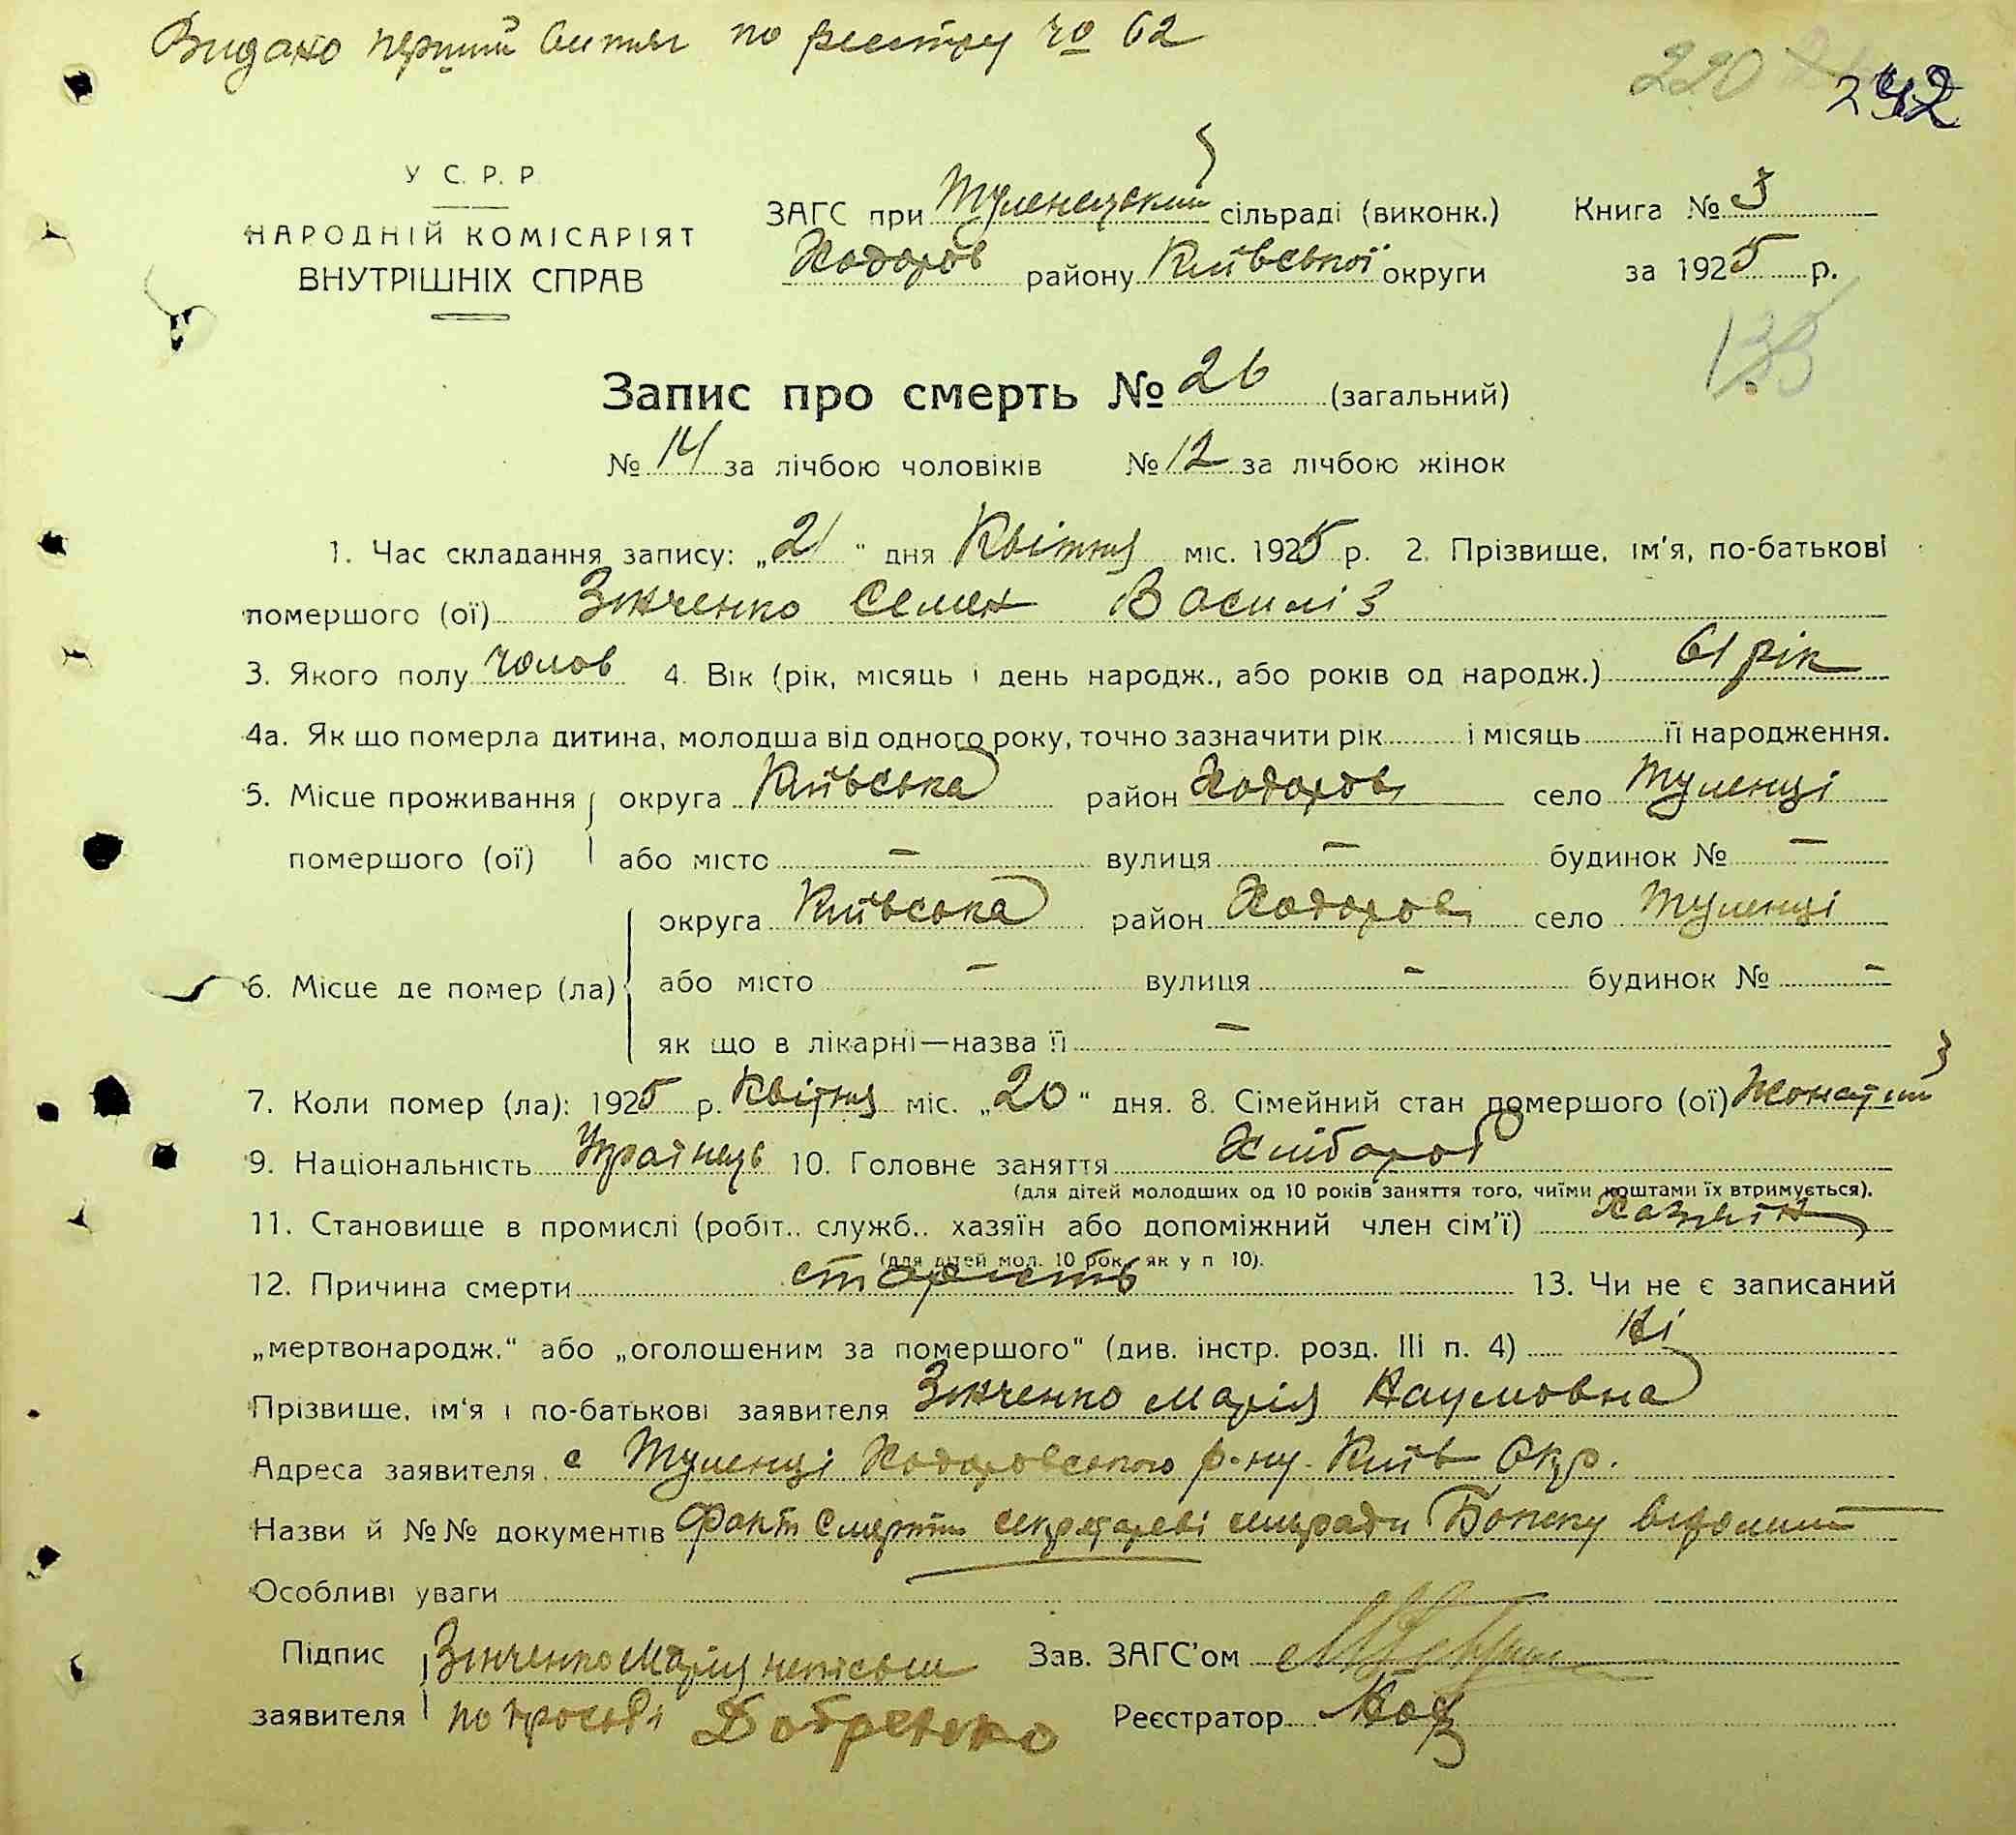 Видано перший витяг по реєстру № 62
220 242
У С. Р. Р
НАРОДНІЙ КОМІСАРІЯТ
ВНУТРІШНІХ СПРАВ
ЗАГС при Тулинецький сільраді (виконк.) Книга № 3
Ходоров району Київської округи за 1925 р.
135
Запис про смерть № 26 (загальний)
№ 14 за лічбою чоловіків № 12 за лічбою жінок
1. Час складання запису: „21" дня Квітня міс. 1925 р. 2. Прізвище, ім'я, по-батькові
помершого (ої) Зінченко Семен Василів
3. Якого полу чолов 4. Вік (рік, місяць і день народж., або років од народж.) 61 рік
4а. Як що померла дитина, молодша від одного року, точно зазначити рік і місяць її народження.
5. Місце проживання округа Київська район Ходоров село Туленці
помершого (ої) або місто — вулиця — будинок № —
округа Київська район Ходоров село Тулинці
6. Місце де помер (ла) або місто — вулиця — будинок № —
як що в лікарні—назва її —
7. Коли помер (ла): 1925 р. Квітня міс. „20" дня. 8. Сімейний стан помершого (ої) Жонатий
9. Національність Українець 10. Головне заняття Хлібороб
(для дітей молодших од 10 років заняття того, чиїми коштами їх втримується).
11. Становище в промислі (робіт.. служб.. хазяїн або допоміжний член сім'ї) Хазяїн
(для дітей мол. 10 рок. як у п 10).
12. Причина смерти старисть 13. Чи не є записаний
„мертвонародж." або „оголошеним за помершого" (див. інстр. розд. III п. 4) Ні
Прізвище, ім'я і по-батькові заявителя Зінченко Марія Наумовна
Адреса заявителя с Туленці Ходоровського р-ну Київ Окр.
Назви й №№ документів Факт смерти секретареві сільради відомий
Особливі уваги
Підпис Зінченко Марія неписьм Зав. ЗАГС'ом
заявителя по просьбі Добренко Реєстратор